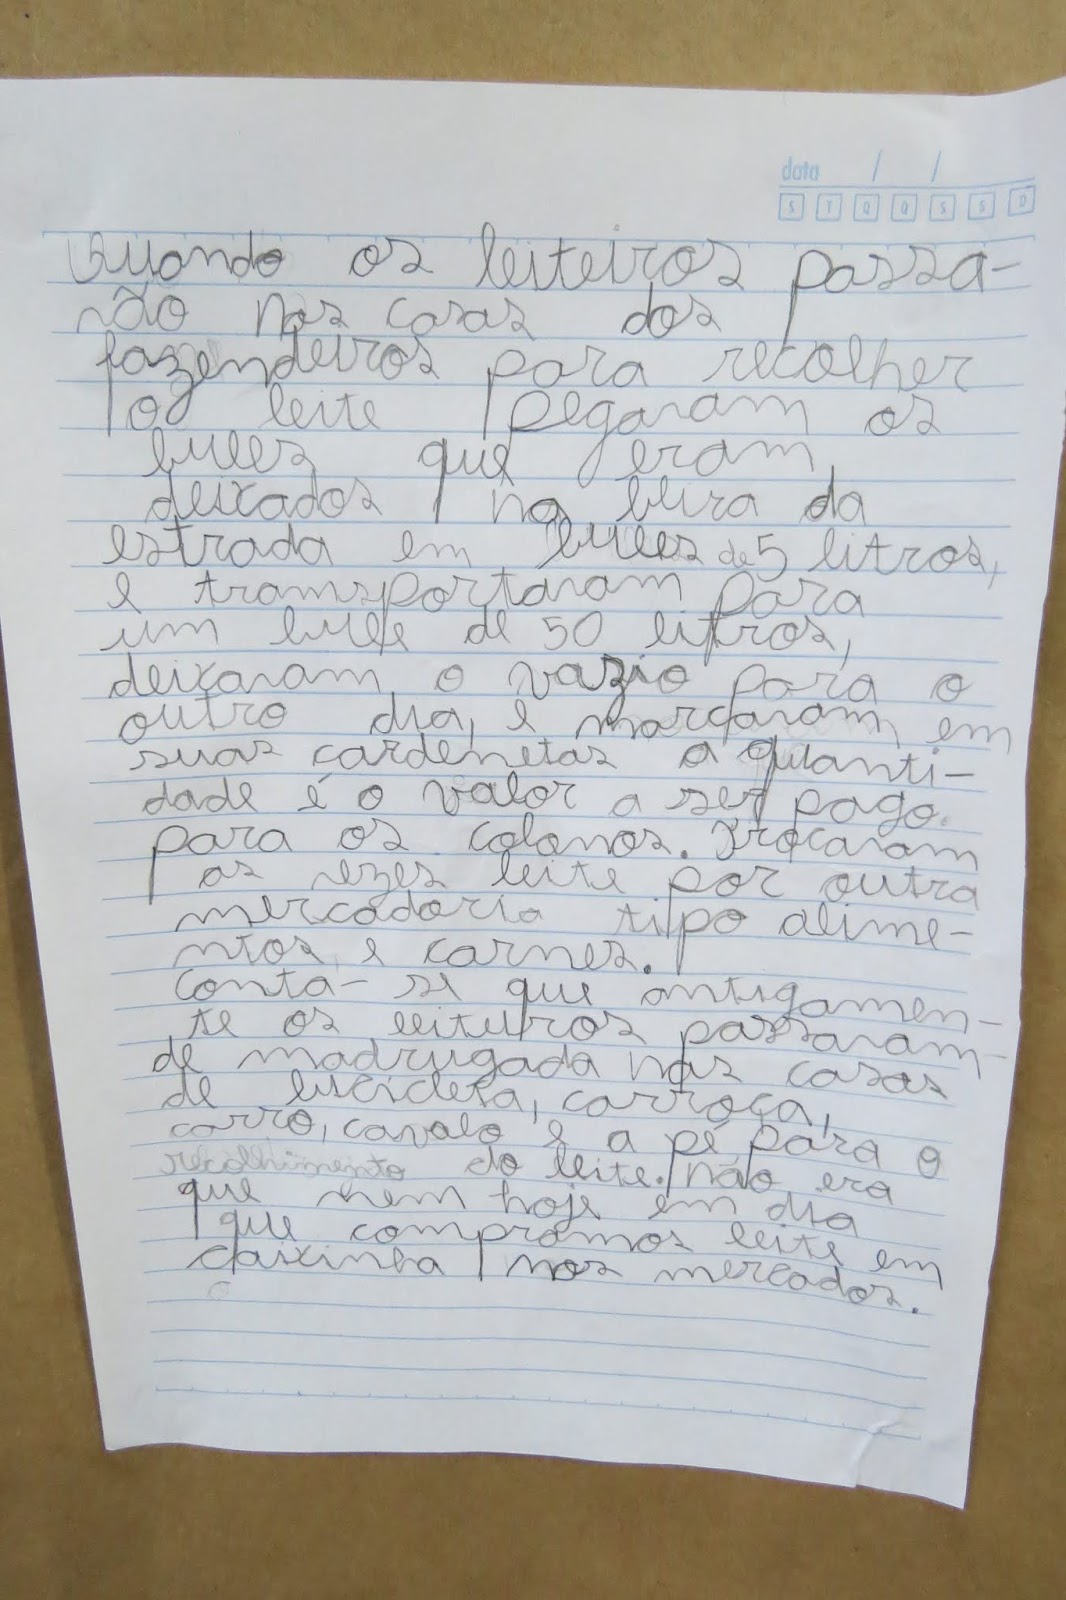 data / /
S T Q Q S S D
Quando os leiteiros passa-
vão nas casas dos
fazendeiros para recolher
o leite pegavam os
bules que eram
deixados na beira da
estrada em bules de 5 litros,
e transportavam para
um bule de 50 litros,
deixavam o vazio para o
outro dia, e marcavam em
suas cardenetas a quanti-
dade é o valor a ser pago.
para os colonos. Trocavam
as vezes leite por outra
mercadoria tipo alime-
ntos e carnes.
Conta-se que antigamen-
te os leiteiros passavam
de madrugada nas casas
de bicicleta, carroça,
carro, cavalo e a pé para o
recolhimento do leite. não era
que nem hoje em dia
que compramos leite em
caixinha nos mercados.